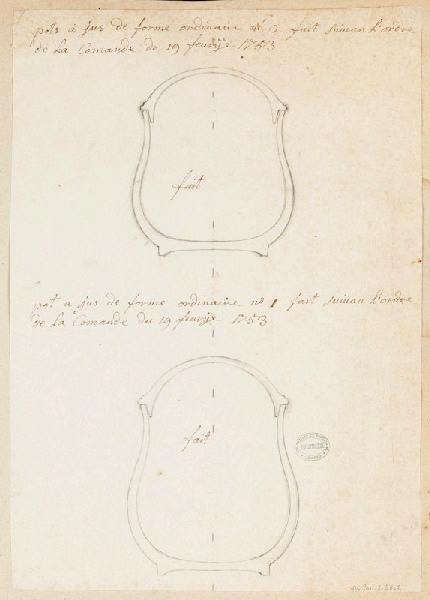 pots a jus de forme ordinaire nº 2 fait suivan l'ordre
de la Comande du 19 fevrije 1753
fait
pot a jus de forme ordinaire nº 1 fait suivan l'ordre
de la Comande du 19 fevrije 1753
fait